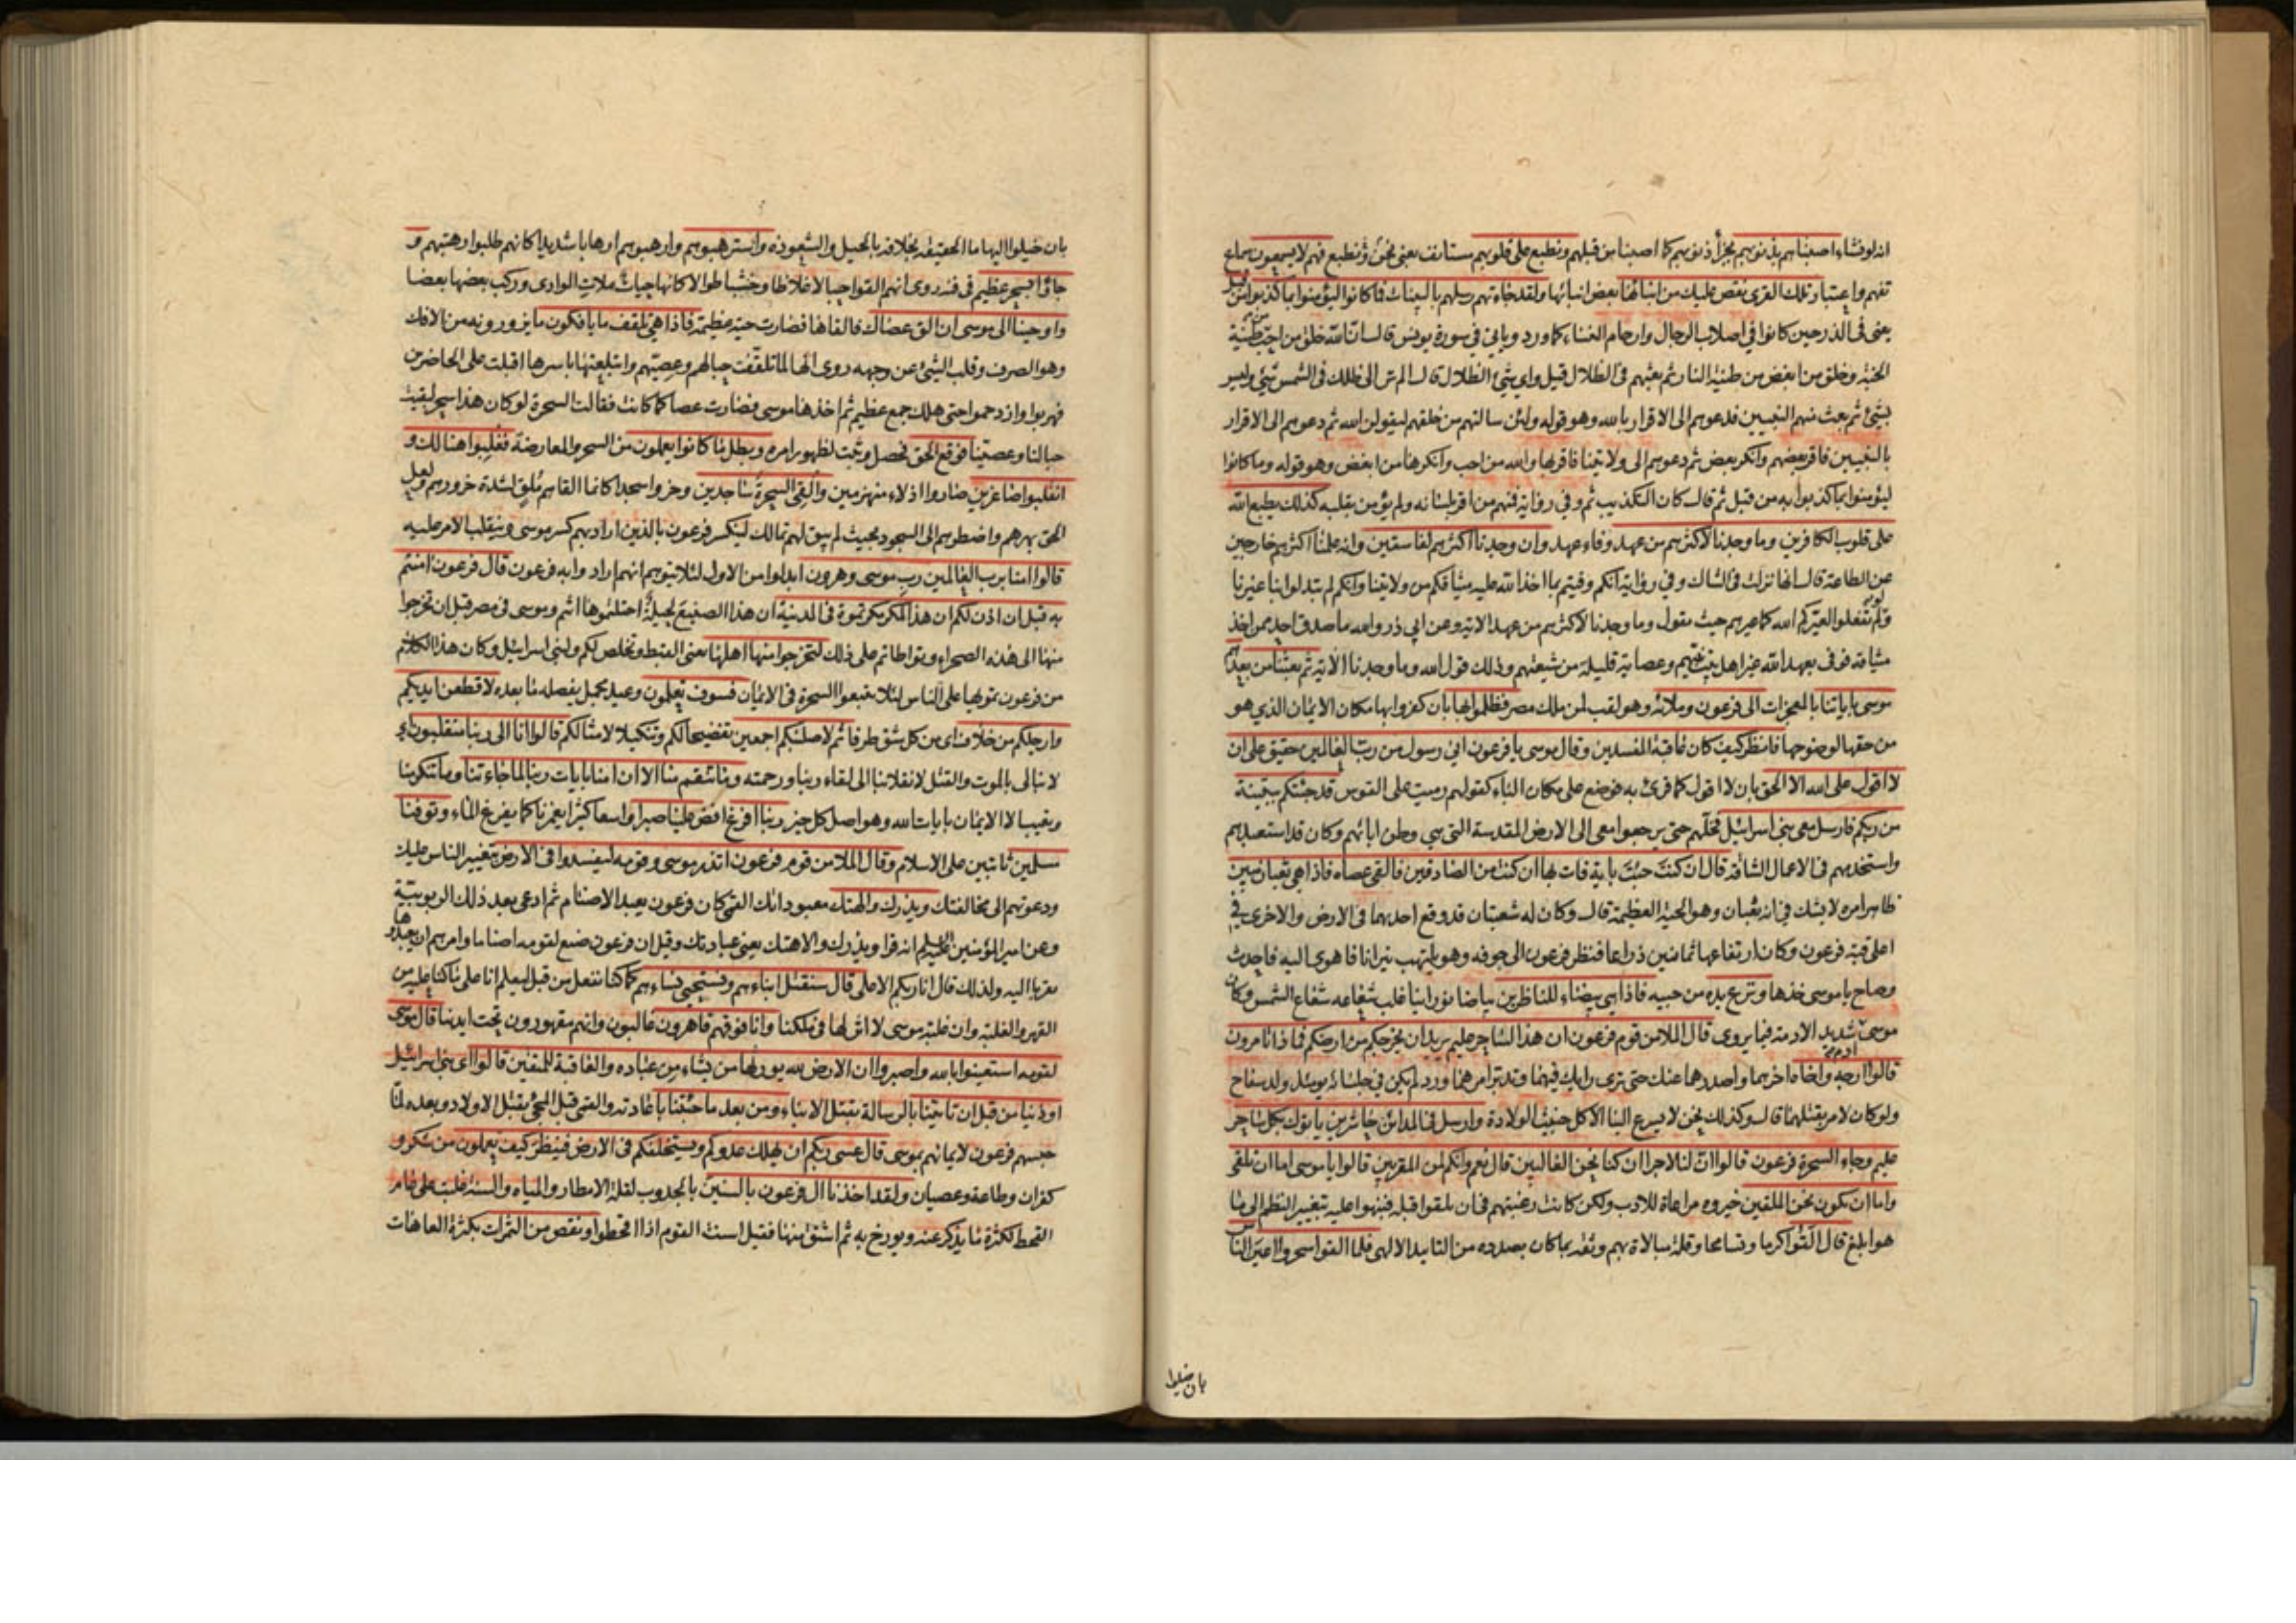 انه لو نشاء اصبناهم بذنوبهم بجزاء ذنوبهم كما اصبنا من قبلهم ونطبع على قلوبهم مستانف يعني نحن ونطبع فهم لا يسمعون سماع
تفهم واعتبار تلك القرى نقص عليك من انبائها بعض انبائها ولقد جاءتهم رسلهم بالبينات فما كانوا ليؤمنوا بما كذبوا من قبل
يعنى فى الذر حين كانوا في اصلاب الرجال وارحام النساء كما ورد وياتي في سورة يونس قال ان الله خلق من احب من طينة
الجنة وخلق من ابغض من طينة النار ثم بعثهم فى الظلال قيل واي شيء الظلال قال الم تر الى ظلك فى الشمس شيء وليس
بشيء ثم بعث منهم النبيين فدعوهم الى الاقرار بالله وهو قوله ولئن سالتهم من خلقهم ليقولن الله ثم دعوهم الى الاقرار
بالنبيين فاقر بعضهم وانكر بعض ثم دعوهم الى ولايتنا فاقر بها والله من احب وانكرها من ابغض وهو قوله وما كانوا
ليؤمنوا بما كذبوا به من قبل ثم قال كان التكذيب ثم وفي رواية فمنهم من اقر بلسانه ولم يؤمن بقلبه كذلك يطبع الله
على قلوب الكافرين وما وجدنا لاكثرهم من عهد وفاء عهد وان وجدنا اكثرهم لفاسقين وانه علمنا اكثرهم خارجين
عن الطاعة قال انها نزلت فى الشاك وفي رواية انكم وفيتم بما اخذ الله عليه ميثاقكم من ولايتنا وانكم لم تبدلوا بنا غيرنا
ولو لم تفعلوا لعيركم الله كما عيرهم حيث يقول وما وجدنا لاكثرهم من عهد الاية وعن ابي ذر والله ما صدق احد ممن اخذ
ميثاقه فوفى بعهد الله غير اهل بيت نبيهم وعصابة قليلة من شيعتهم وذلك قول الله وما وجدنا الاية ثم بعثنا من بعدهم
موسى باياتنا بالمعجزات الى فرعون وملائه وهو لقب لمن ملك مصر فظلموا بها بان كفروا بها مكان الايمان الذي هو
من حقها لوضوحها فانظر كيف كان عاقبة المفسدين وقال موسى يا فرعون اني رسول من رب العالمين حقيق على ان
لا اقول على الله الا الحق بان لا اقول كما قرئ به فوضع على مكان الباء كقولهم رميت على القوس قد جئتكم ببينة
من ربكم فارسل معي بني اسرائيل فخلهم حتى يرجعوا معى الى الارض المقدسة التي هي وطن ابائهم وكان قد استعبدهم
واستخدمهم فى الاعمال الشاقة قال ان كنت جئت باية فات بها ان كنت من الصادقين فالقى عصاه فاذا هي ثعبان مبين
ظاهر امره لا يشك في انه ثعبان وهو الحية العظيمة قال وكان له شعبتان قد وقع احديهما فى الارض والاخرى في
اعلى قبة فرعون وكان ارتفاعها ثمانين ذراعا فنظر فرعون الى جوفه وهو يلتهب نيرانا فاهوى اليه فاحدث
وصاح يا موسى خذها ونزع يده من جيبه فاذا هي بيضاء للناظرين بياضا نورانيا غلب شعاعه شعاع الشمس وكان
موسى شديد الادمة فيما يروى قال الملا من قوم فرعون ان هذا لساحر عليم يريد ان يخرجكم من ارضكم فماذا تامرون
قالوا ارجه واخاه اخرهما واصدرهما عنك حتى ترى رايك فيهما وتدبر امرهما ورد لم يكن في جلسائه يومئذ ولد سفاح
ولو كان لامر بقتلهما قال وكذلك نحن لا يسرع الينا الا كل خبيث الولادة وارسل فى المدائن حاشرين ياتوك بكل ساحر
عليم وجاء السحرة فرعون قالوا ان لنا لاجرا ان كنا نحن الغالبين قال نعم وانكم لمن المقربين قالوا يا موسى اما ان تلقى
واما ان نكون نحن الملقين خيروه مراعاة للادب ولكن كانت رغبتهم فى ان يلقوا قبله فنبهوا عليه بتغيير النظم الى ما
هو ابلغ قال القوا كرما وتسامحا وقلة مبالاة بهم وثقة بما كان بصدده من التاييد الالهي فلما القوا سحروا اعين الناس
بان خيلوا
بان خيلوا اليها ما الحقيقة بخلافه بالحيل والشعوذه واسترهبوهم وارهبوهم ارهابا شديدا كانهم طلبوا رهبتهم و
جاؤا بسحر عظيم في فنه روى انهم القوا حبالا غلاظا وخشبا طوالا كانها حيات ملات الوادي وركب بعضها بعضا
واوحينا الى موسى ان الق عصاك فالقاها فصارت حية عظيمة فاذا هي تلقف ما يافكون ما يزورونه من الافك
وهو الصرف وقلب الشيء عن وجهه روى انها لما تلقفت حبالهم وعصيهم وابتلعتها باسرها اقبلت على الحاضرين
فهربوا وازدحموا حتى هلك جمع عظيم ثم اخذها موسى فصارت عصا كما كانت فقالت السحرة لو كان هذا سحر لبقيت
حبالنا وعصينا فوقع الحق فحصل وثبت لظهور امره وبطل ما كانوا يعملون من السحر والمعارضة فغلبوا هنالك و
انقلبوا صاغرين صاروا اذلاء منهزمين والقى السحرة ساجدين وخروا سجدا كانما القاهم ملق لشدة خرورهم ولعل
الحق بهرهم واضطرهم الى السجود بحيث لم يبق لهم تمالك لينكسر فرعون بالذين اراد بهم كسر موسى وينقلب الامر عليه
قالوا امنا برب العالمين رب موسى وهرون ابدلوا من الاول لئلا يتوهم انهم اراد وا به فرعون قال فرعون امنتم
به قبل ان اذن لكم ان هذا لمكر مكرتموه فى المدينة ان هذا الصنيع لحيلة احتلتموها انتم وموسى فى مصر قبل ان تخرجوا
منها الى هذه الصحراء وتواطاتم على ذلك لتخرجوا منها اهلها يعنى القبط وتخلص لكم ولبني اسرائيل وكان هذا الكلام
من فرعون تمويها على الناس لئلا يتبعوا السحرة فى الايمان فسوف تعلمون وعيد مجمل يفصله ما بعده لاقطعن ايديكم
وارجلكم من خلاف اى من كل شق طرفا ثم لاصلبنكم اجمعين تفضيحا لكم وتنكيلا لامثالكم قالوا انا الى ربنا منقلبون اي
لا نبالى بالموت والقتل لانقلابنا الى لقاء ربنا ورحمته وما تنقم منا الا ان امنا بايات ربنا لما جاءتنا وما تنكر منا
وتعيب الا الايمان بايات الله وهو اصل كل خير ربنا افرغ افض علينا صبرا واسعا كثيرا يغمرنا كما يفرغ الماء وتوفنا
مسلمين ثابتين على الاسلام وقال الملا من قوم فرعون اتذر موسى وقومه ليفسدوا فى الارض بتغيير الناس عليك
ودعوتهم الى مخالفتك ويذرك والهتك معبوداتك القى كان فرعون يعبد الاصنام ثم ادعى بعد ذلك الربوبية
وعن امير المؤمنين عليه السلم انه قرا ويذرك والاهتك يعنى عبادتك وقيل ان فرعون صنع لقومه اصناما وامرهم ان يعبدوها
تقربا اليه ولذلك قال انا ربكم الاعلى قال سنقتل ابناءهم ونستحيي نساءهم كما كنا نفعل من قبل ليعلم انا على ما كنا عليه من
القهر والغلبة وان غلبة موسى لا اثر لها فى ملكنا وانا فوقهم قاهرون غالبون وانهم مقهورون تحت ايدينا قال موسى
لقومه استعينوا بالله واصبروا ان الارض لله يورثها من يشاء من عباده والعاقبة للمتقين قالوا اى بني اسرائيل
اوذينا من قبل ان تاتينا بالرسالة بقتل الابناء ومن بعد ما جئتنا باعادته والقى قبل المجيء بقتل الاولاد وبعده لما
حبسهم فرعون لايمانهم بموسى قال عسى ربكم ان يهلك عدوكم ويستخلفكم فى الارض فينظر كيف تعملون من شكر و
كفران وطاعة وعصيان ولقد اخذنا ال فرعون بالسنين بالجدوب لقلة الامطار والمياه والسنة غلبت على عام
القحط لكثرة ما يذكر عنه ويورخ به ثم اشتق منها فقيل اسنت القوم اذا اقحطوا ونقص من الثمرات بكثرة العاهات